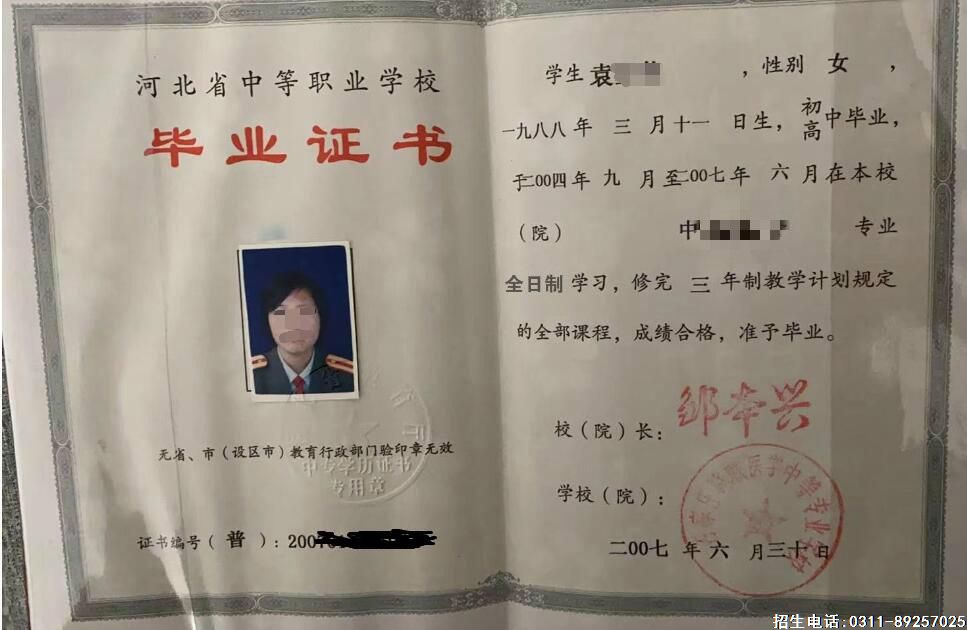 河北省中等职业学校
毕业证书
无省、市（设区市）教育行政部门验印章无效
中专学历证书
专用章
证书编号（普）：2007
学生 袁 ，性别 女 ，
一九八八年 三 月十一 日生，初高中毕业，
于二00四年 九 月至二00七年 六 月在本校
（院） 中 专业
全日制 学习，修完 三 年制教学计划规定
的全部课程，成绩合格，准予毕业。
校（院）长：邹本兴
学校（院）：
医学中等专业学校
二00七 年 六 月三十日
招生电话:0311-89257025